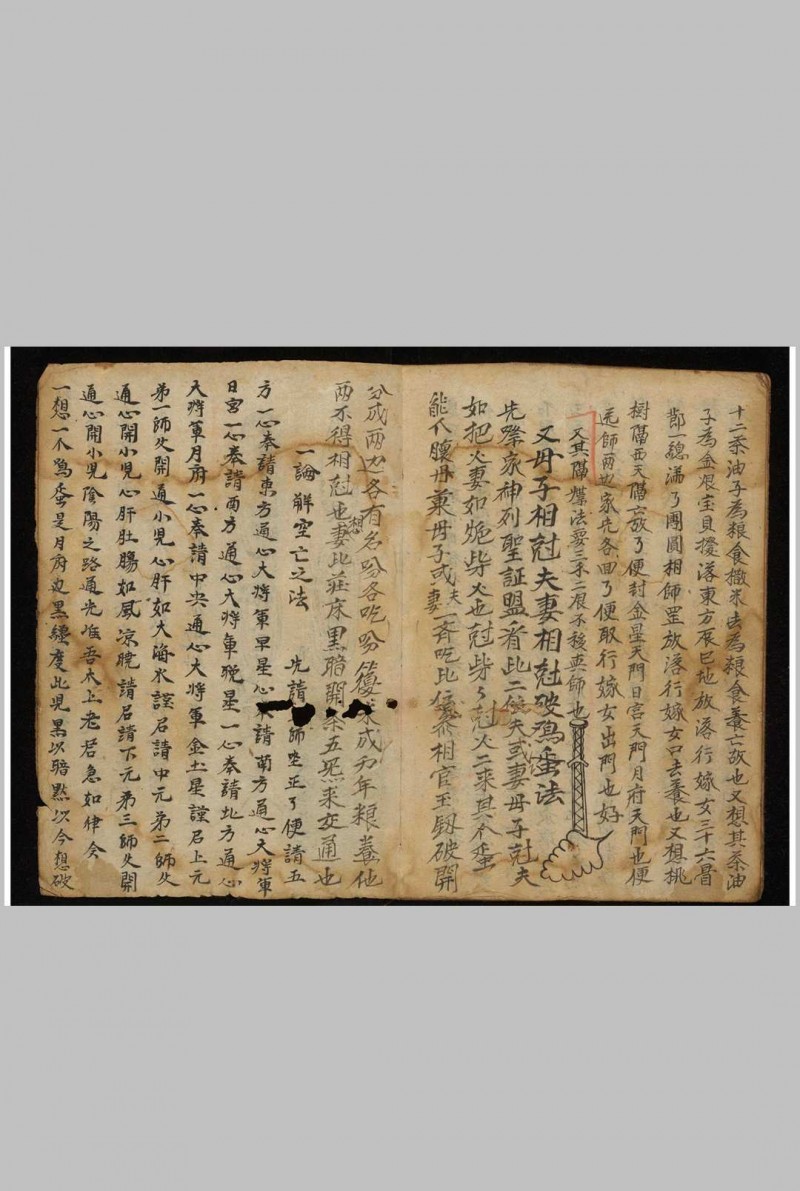 十二茶油子為粮食撒米去為粮食養亡故也又想其茶油
子為金艮宝貝擾落東方辰巳地放落行嫁女三十六骨
節一總滿了團圓相師罡放落行嫁女口去養也又想桃
樹隔西天隔亡故了便封金星天門日宮天門月府天門也便
元師兩边家先各回了便取行嫁女出門也好
又其隔煞法要三禾二艮不移與師也
又母子相尅夫妻相尅破鴉蛋法
先祭家神列聖証盟看此二位夫或妻母子尅夫
如把火妻如炮柴火也尅柴了尅火二來其个蛋
能个腹丹藥母子或夫妻一齊吃比相官王剱破開
分成兩边各有名吩各吃吩成万年粮養他
兩不得相尅也妻比莊床黑暗開來五炁來交通也
一論解空亡之法 先請師坐正了便請五
方一心奉請東方通心大将軍早星心奉請南方通心大将軍
日宮一心奉請西方通心大将軍晚星一心奉請北方通心
大将軍月府一心奉請中央通心大将軍金土星謹召上元
第一師父開通小児心肝如大海水謹召請中元第二師父
通心開小児心肝肚腸如風凉曉請召請下元第三師父開
通心開小児陰陽之路通光准吾太上老君急如律令
一想一个鴉蛋是月府边黑纏度此児黑以暗點以今想破